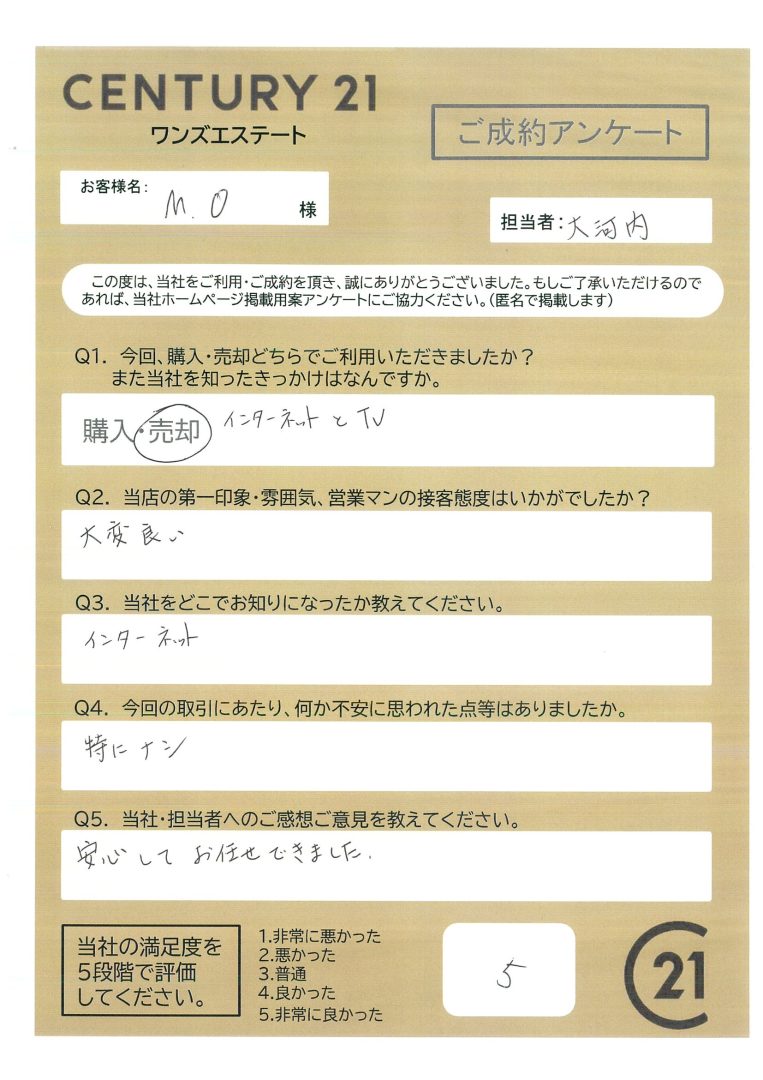 CENTURY 21
ワンズエステート
ご成約アンケート
お客様名:
M.O
様
担当者:大河内
この度は、当社をご利用・ご成約を頂き、誠にありがとうございました。もしご了承いただけるので
あれば、当社ホームページ掲載用案アンケートにご協力ください。(匿名で掲載します)
Q1. 今回、購入・売却どちらでご利用いただきましたか?
また当社を知ったきっかけはなんですか。
購入・売却 インターネットと TV
Q2. 当店の第一印象・雰囲気、営業マンの接客態度はいかがでしたか?
大変良い
Q3. 当社をどこでお知りになったか教えてください。
インターネット
Q4. 今回の取引にあたり、何か不安に思われた点等はありましたか。
特にナシ
Q5. 当社・担当者へのご感想ご意見を教えてください。
安心して お任せできました.
当社の満足度を
5段階で評価
してください。
1.非常に悪かった
2.悪かった
3.普通
4.良かった
5.非常に良かった
5
21